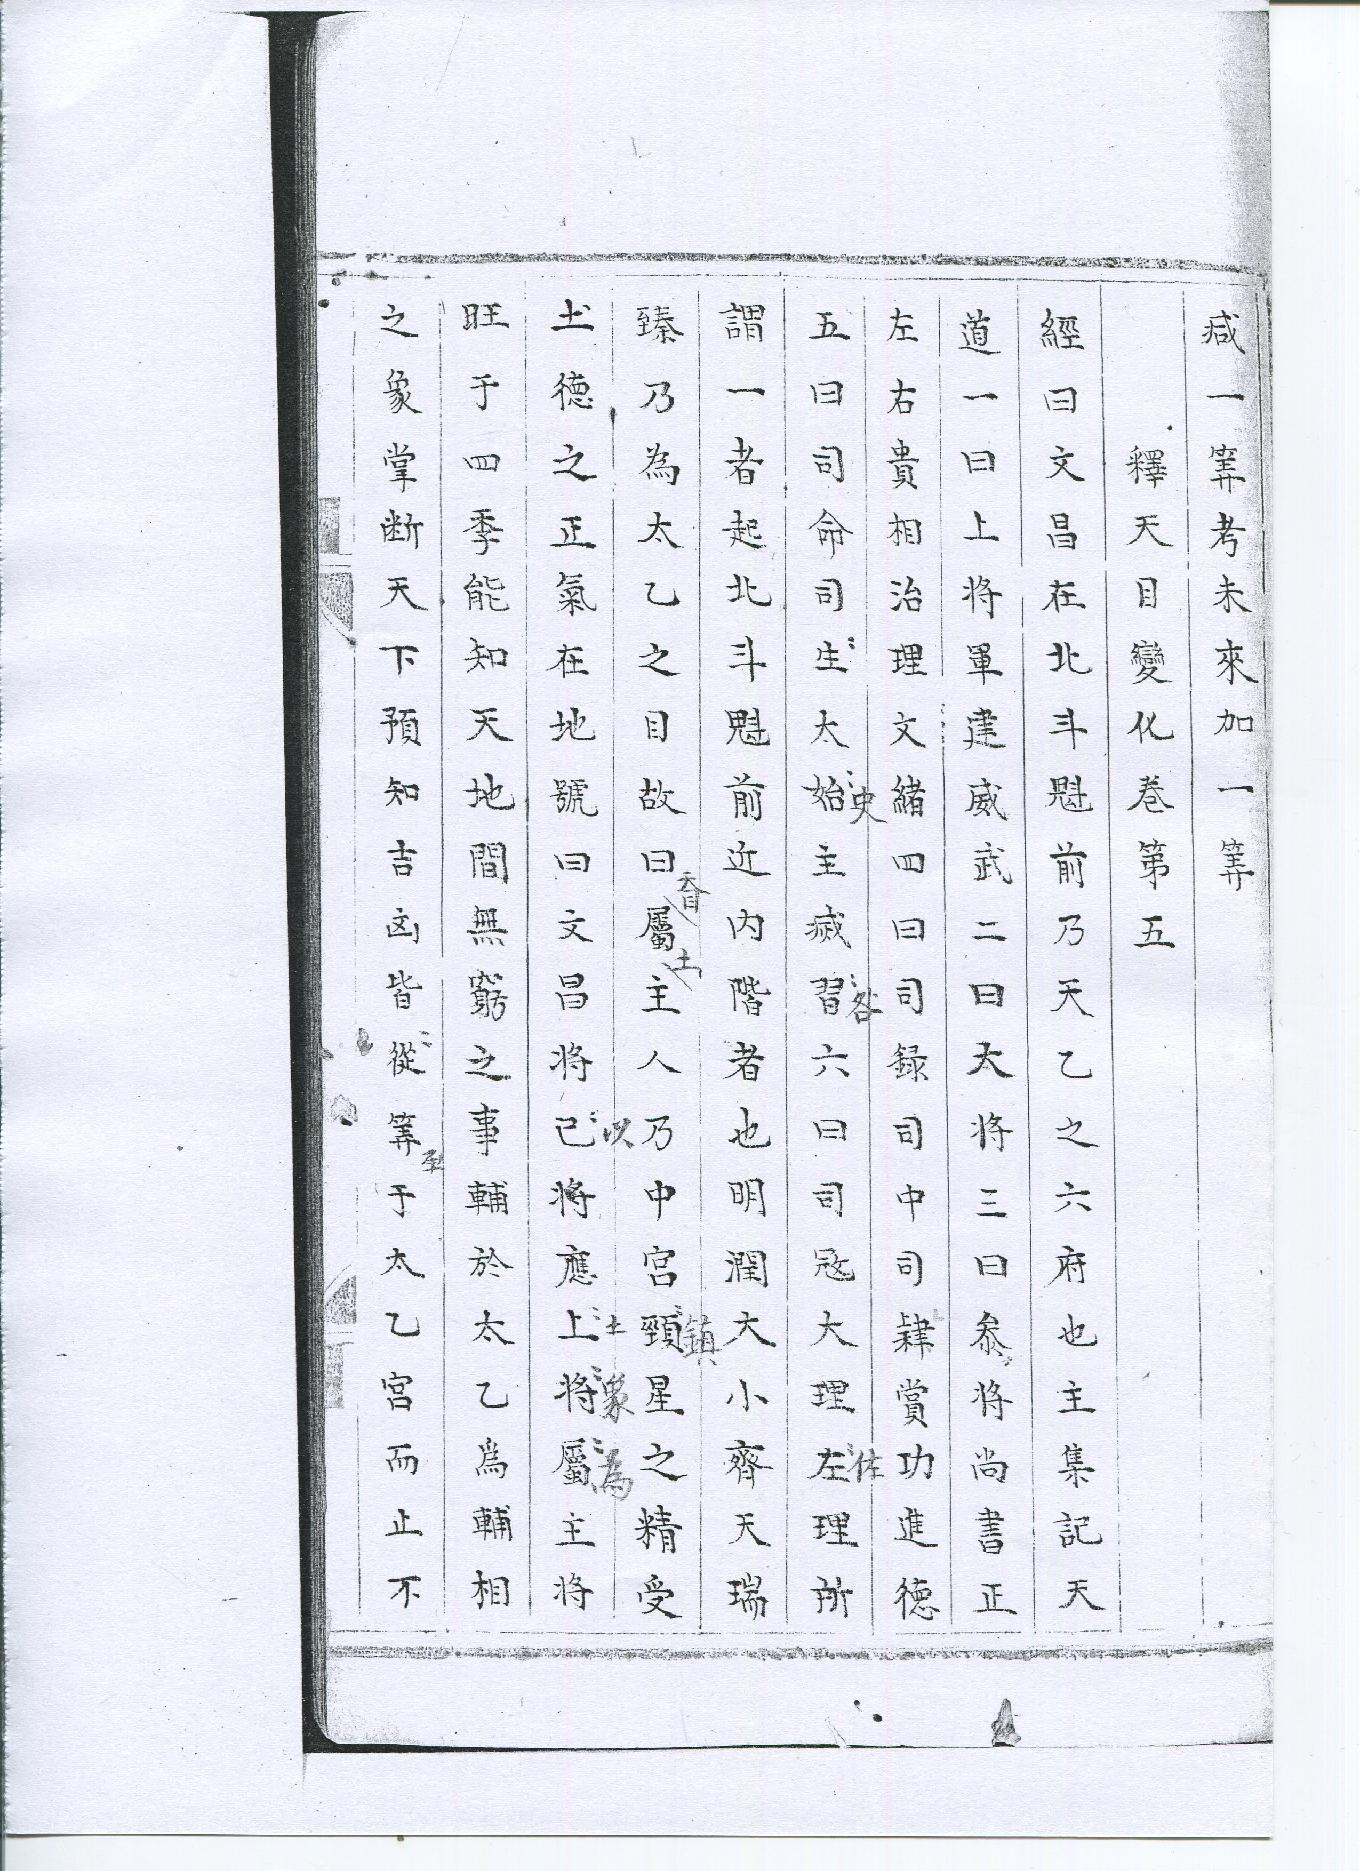 减一筭考未來加一筭
釋天目變化卷第五
經曰文昌在北斗魁前乃天乙之六府也主集記天
道一曰上将軍建威武二曰大将三曰叅将尚書正
左右貴相治理文緒四曰司録司中司肄賞功進德
五曰司命司生太始主㓕習六曰司冦大理左理所
史
咎
佐
謂一者起北斗魁前近内階者也明潤大小齊天瑞
臻乃為太乙之目故曰屬主人乃中宫頸星之精受
天目
土
鎮
土德之正氣在地號曰文昌将己将應上将屬主将
以
土
象
為
旺于四季能知天地間無窮之事輔於太乙爲輔相
之象掌断天下預知吉凶皆從筭于太乙宫而止不
至